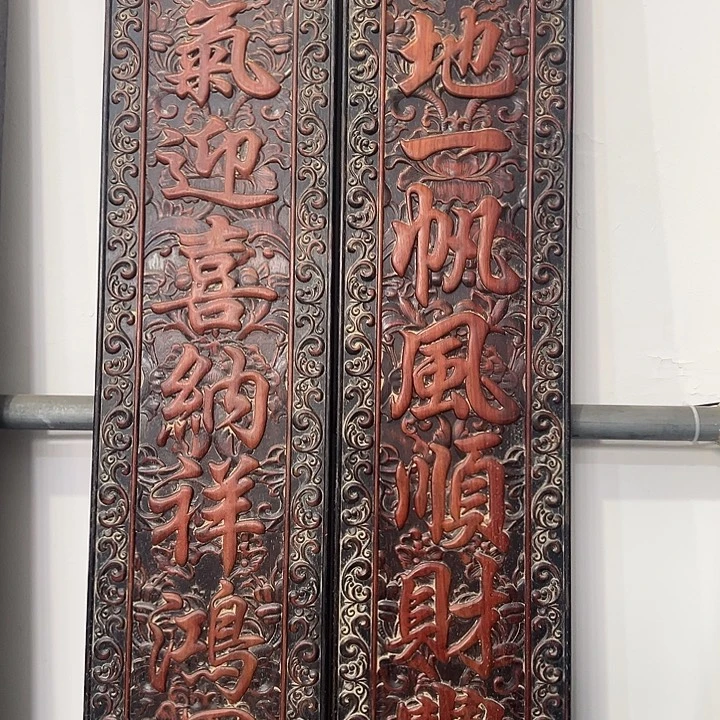 地一帆風順財
氣迎喜納祥鴻